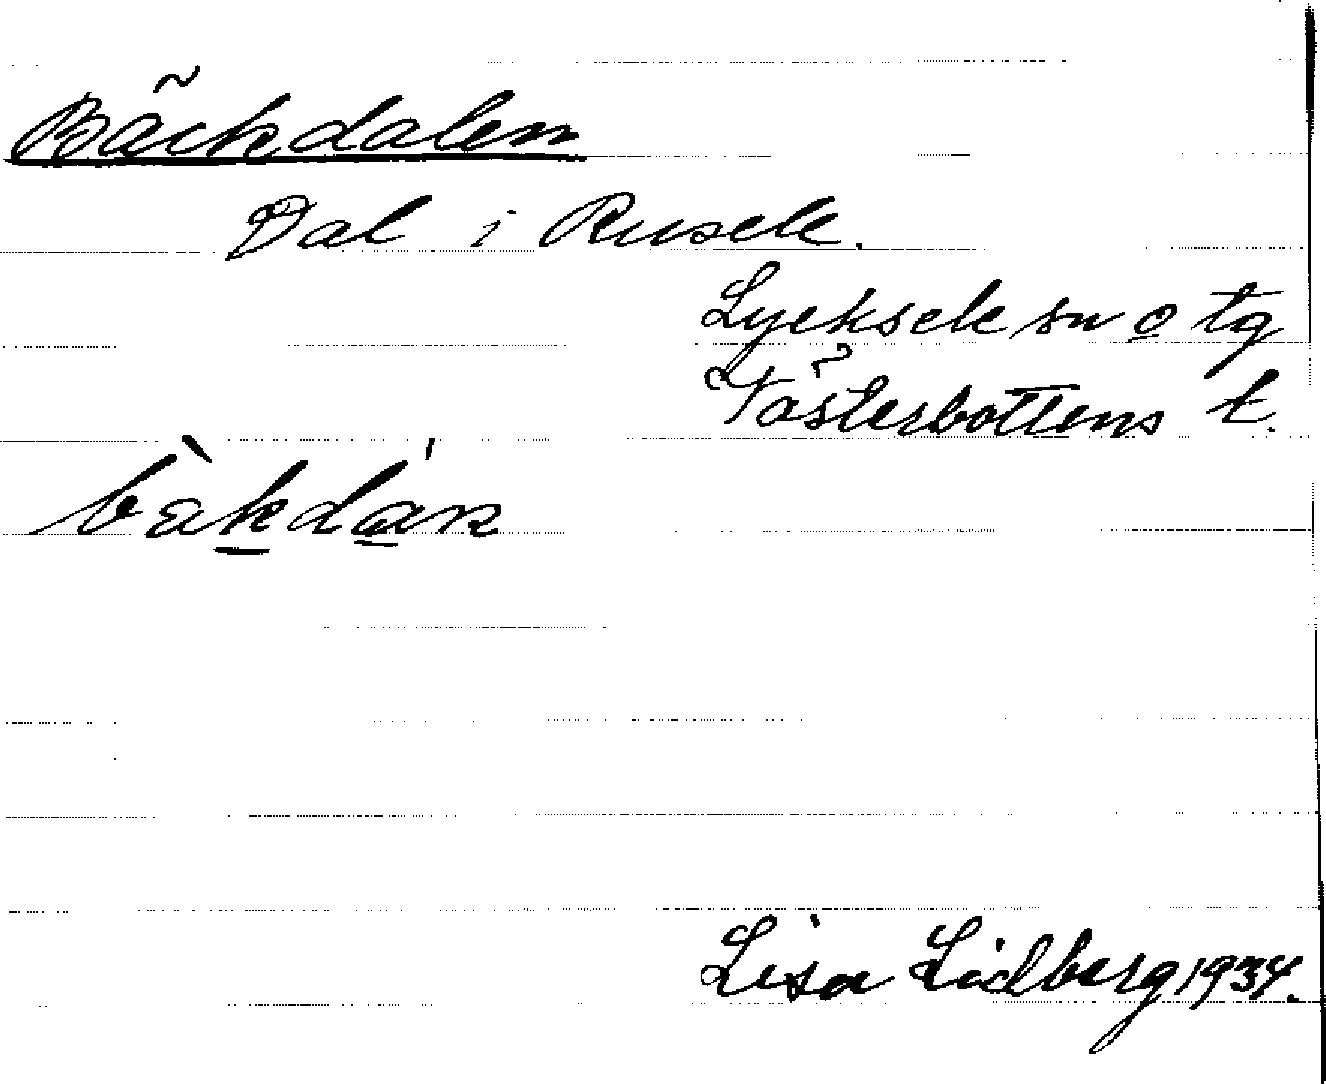 Bäckdalen
Dal i Rusele.
Lycksele sn o tg
Västerbottens l.
Lisa Lidberg 1934.